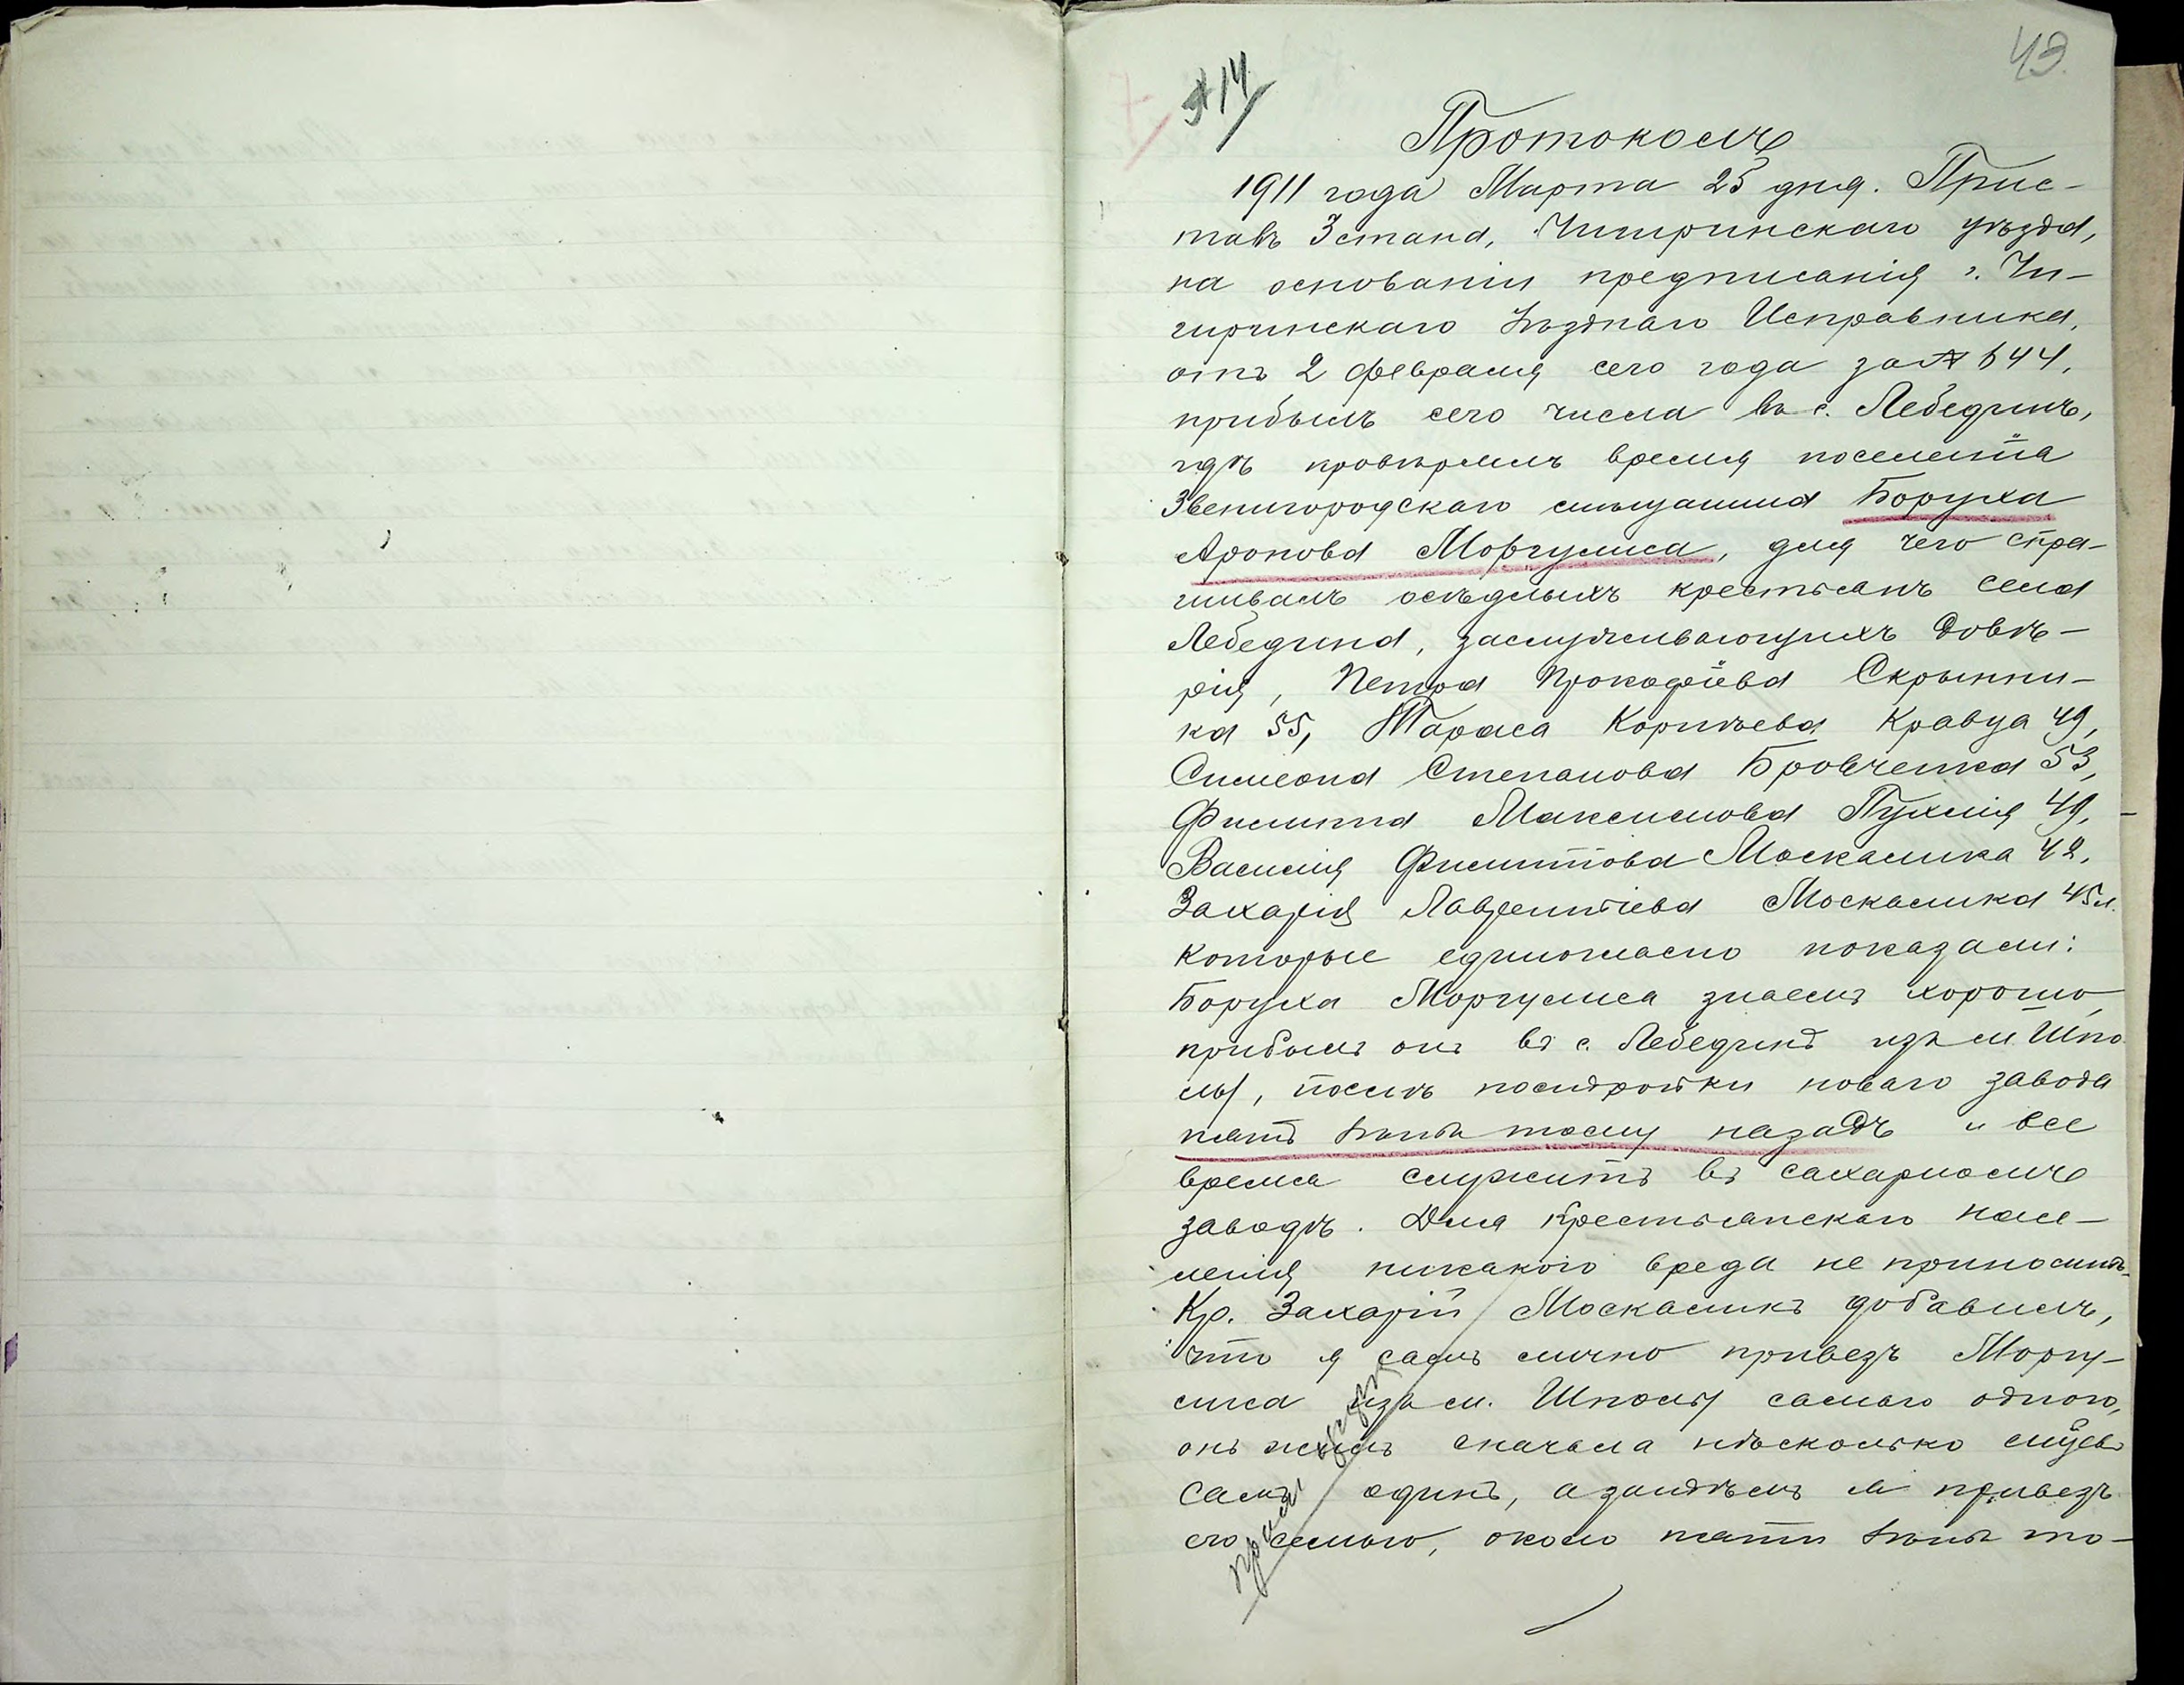 43.
№ 14
Протоколъ
1911 года Марта 25 дня. Прис-
тавъ 3 стана, Чигиринскаго уѣзда,
на основаніи предписанія г. Чи-
гиринскаго Уѣзднаго Исправника,
отъ 2 февраля сего года за №
прибылъ сего числа въ с. Лебединъ,
гдѣ провѣрилъ время поселенія
Звенигородскаго мѣщанина Боруха
Аронова Моргулиса, для чего спра-
шивалъ осѣдлыхъ крестьянъ села
Лебедина, заслуживающихъ довѣ-
рія, Петра Прокофіева Скрынни-
ка 55, Тараса Корнѣева Кравца 49,
Симеона Степанова Бровченка 53,
Филиппа Максимова Пухлія 49,
Василія Филиппова Москалика 42,
Захарія Лаврентіева Москалика 45 л.
которые единогласно показали:
Боруха Моргулиса знаемъ хорошо,
прибылъ онъ въ с. Лебединъ изъ м. Шпо
лы, послѣ постройки новаго завода
пять лѣтъ тому назадъ и все
время служитъ въ сахарномъ
заводѣ. Для крестьянскаго насе-
ленія никакого вреда не приноситъ.
Кр. Захарій Москаликъ добавилъ,
что я самъ лично привезъ Моргу-
лиса изъ м. Шполы самаго одного,
онъ жилъ сначала нѣсколько
самъ одинъ, а затѣмъ я привезъ
его семью, около пяти лѣтъ то-